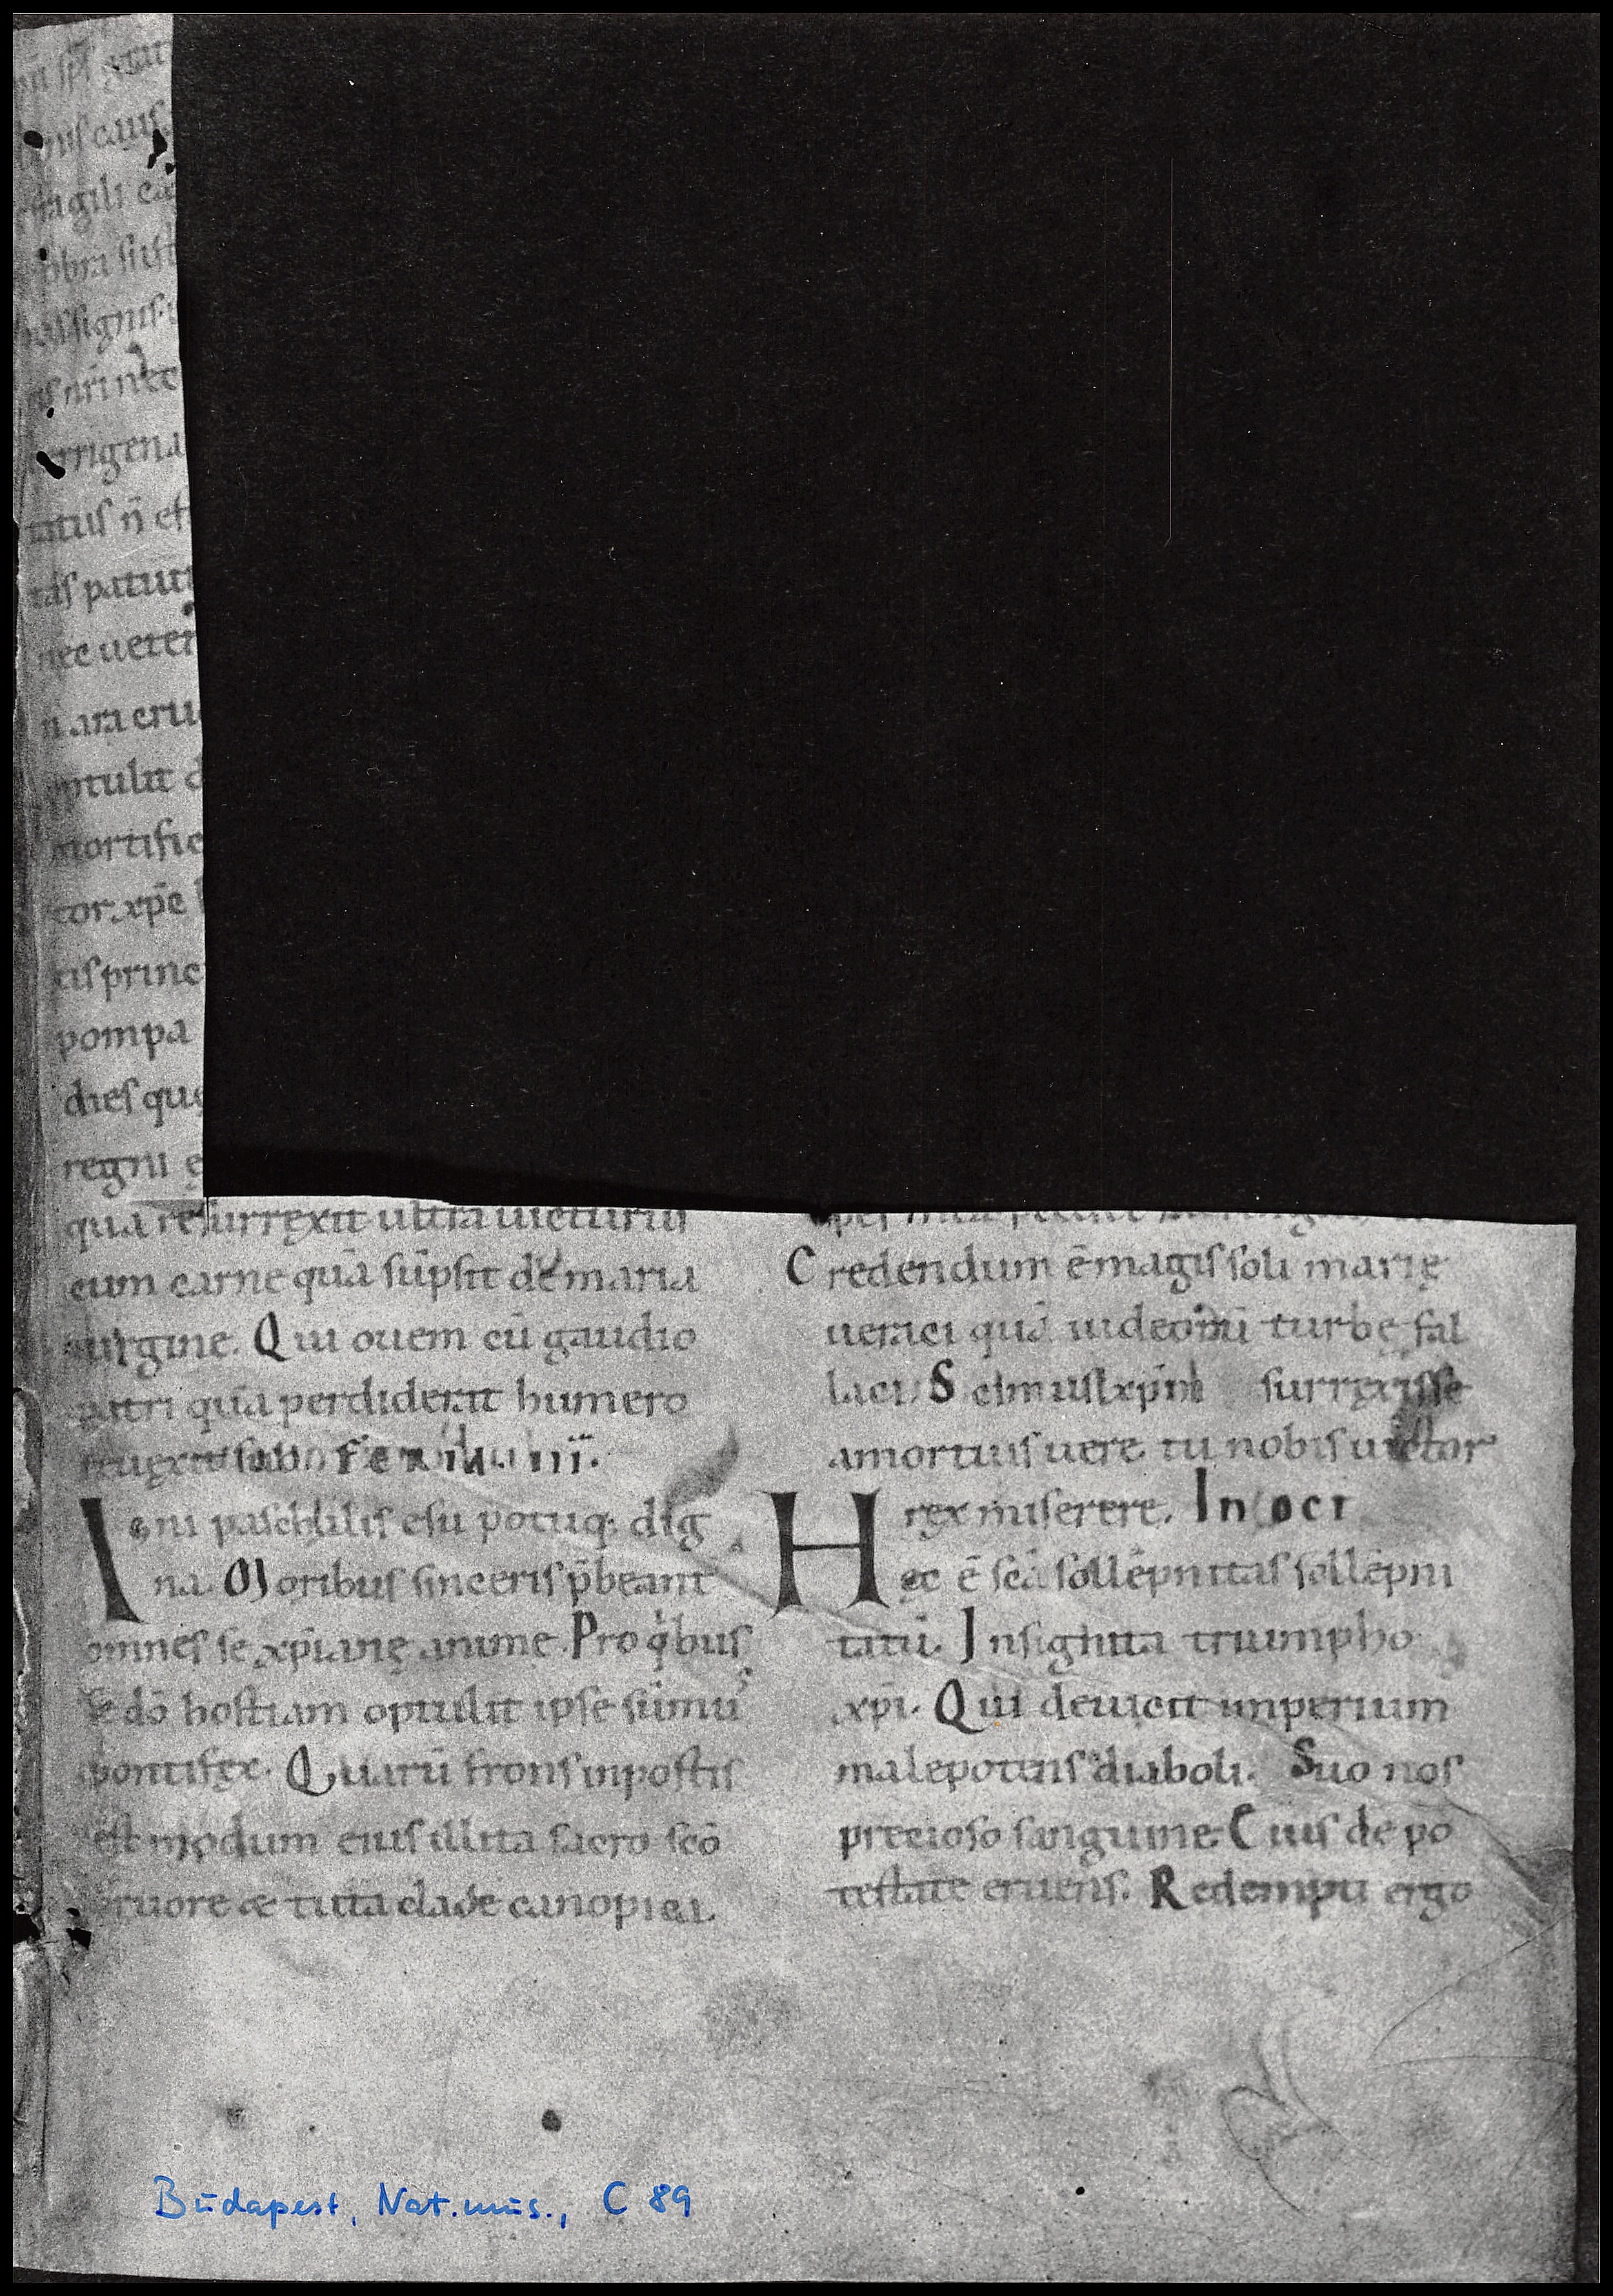 pus caus
fragili ca
signis
nri nec
rrigena
titus n̄ est
tas patuit
nec ueter
n ara cru
optulit d
mortific
tor. xp̄e
us princ
pompa
dies quę
regnu ę
qua resurrexit ultra uicturus
cum carne quā sūpsit de maria
uirgine. Qui ouem cū gaudio
patri quā perdiderat humero
reuexit suo feria iii.
Ieni paschalis esu potuq; dig
na. Moribus sinceris p̄beant
omnes se xp̄ianę anime. Pro qͥbus
se dō hostiam optulit ipse sūmus
pontifex. Quarū frons inpostis
est modum eius illita sacro scō
cruore & tuta clade canopica.
Credendum ē magis soli marię
ueraci quā iudeorū turbę fal
laci. Scimus xp̄m surrexisse
a mortuis uere tu nobis uictor
rex miserere. In oct
Hęc ē scā sollēpnitas sollēpni
tatū. Insignita triumpho
xp̄i. Qui deuicit imperium
malepotens diaboli. Suo nos
precioso sanguine. Cuius de po
testate eruens. Redempti ergo
Budapest, Nat.mus., C 89